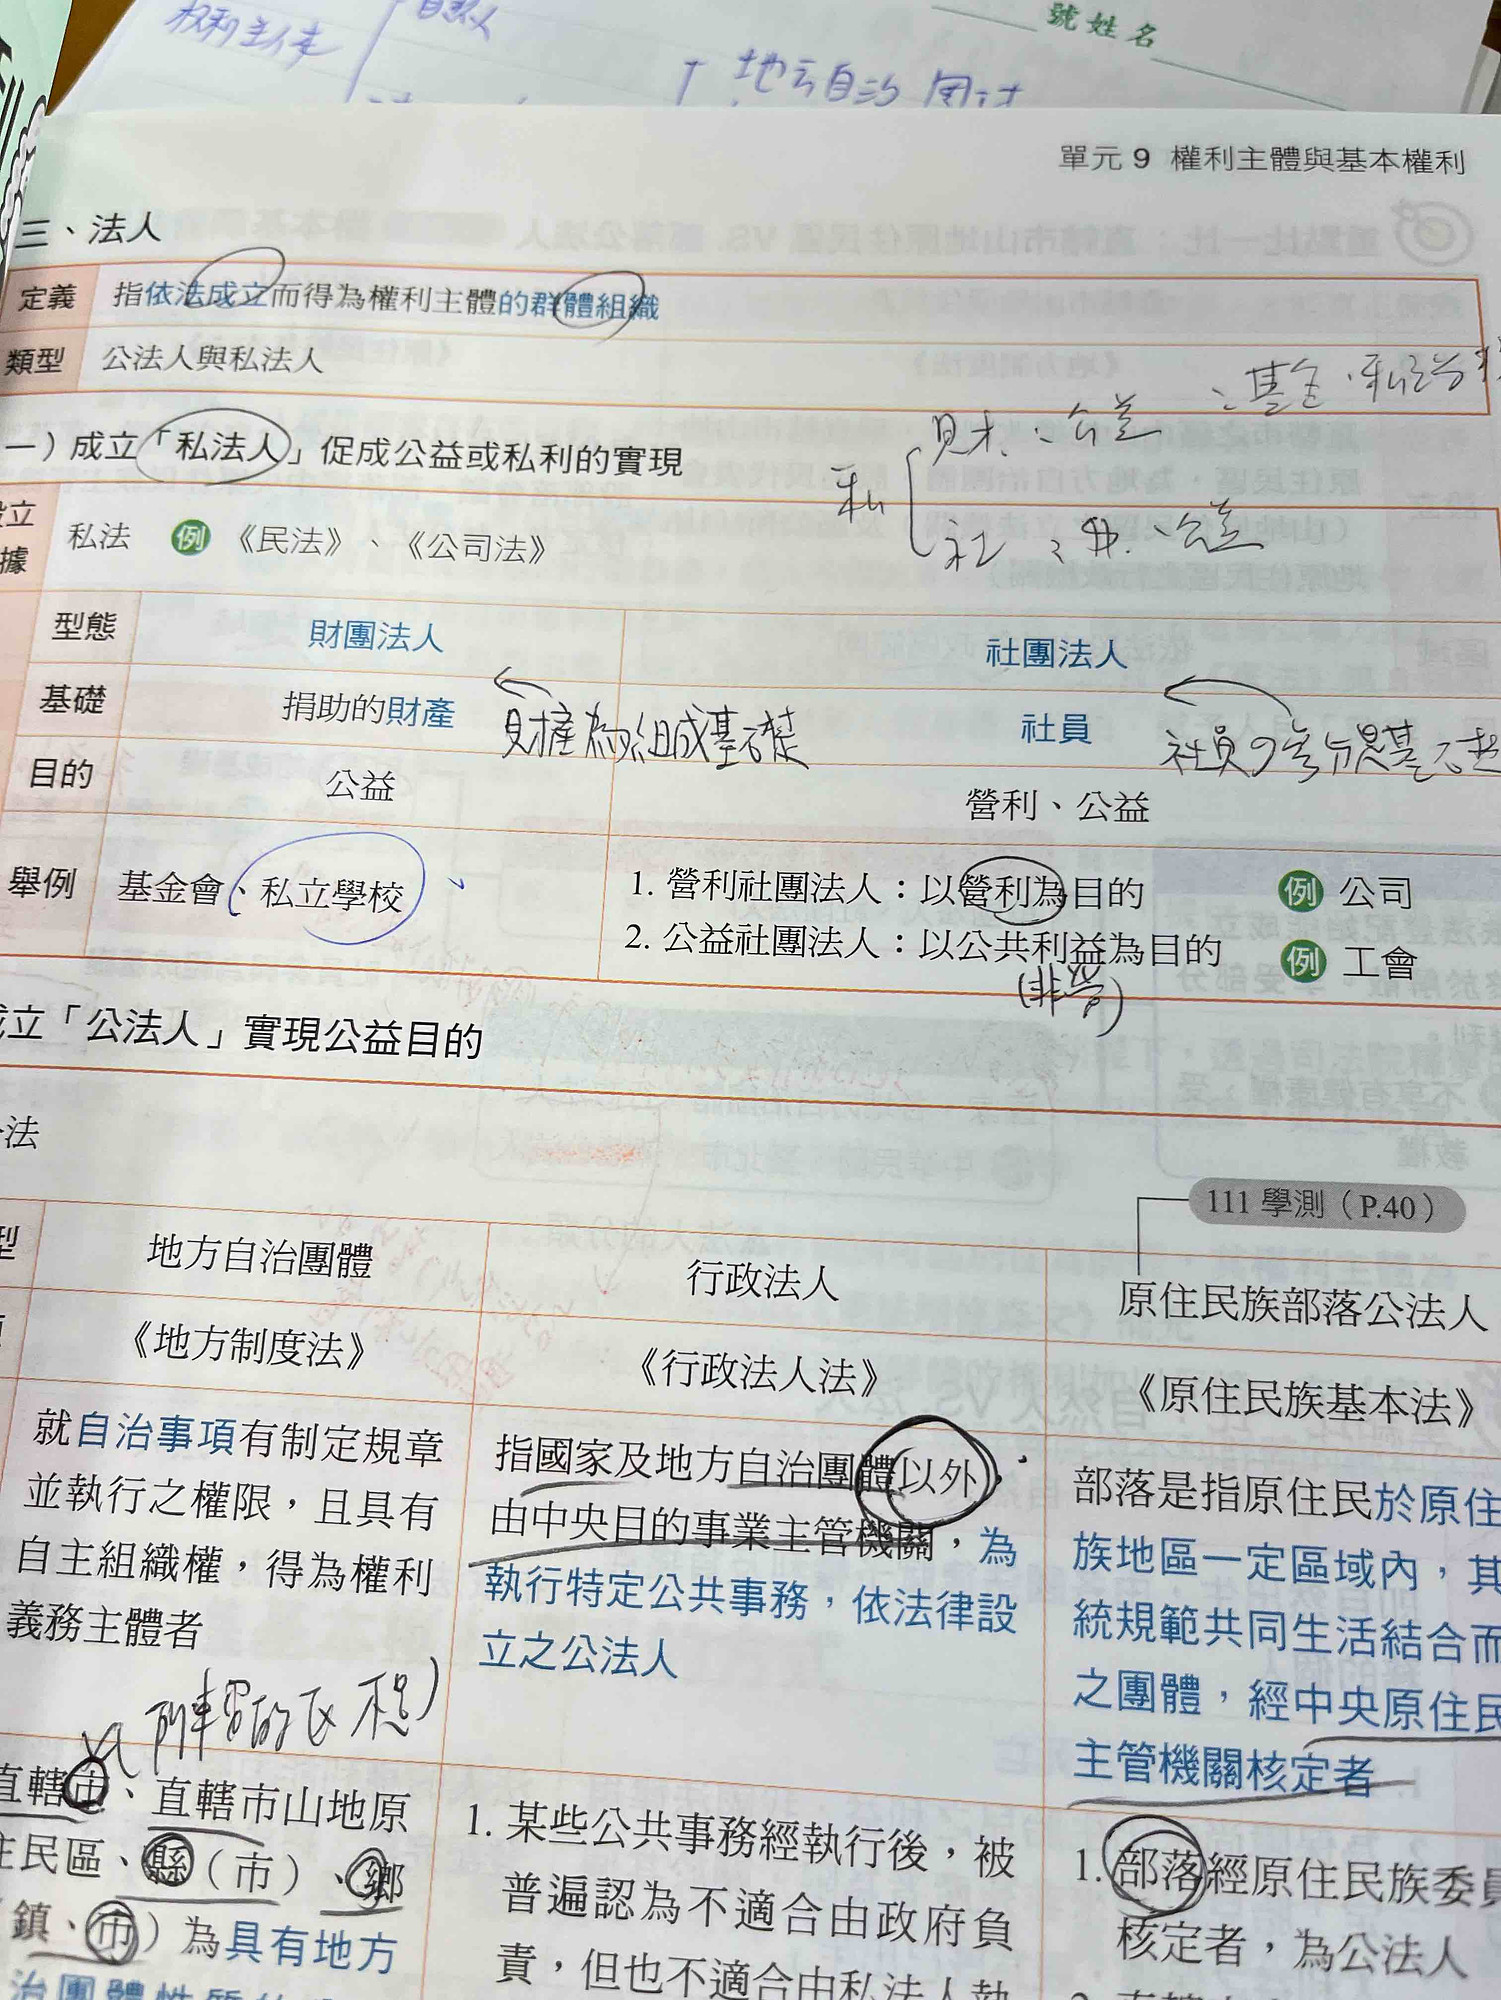 權利主体
自然人
號姓名
地方自治團体
單元 9 權利主體與基本權利
三、法人
定義 指依法成立而得為權利主體的群體組織
類型 公法人與私法人
一）成立「私法人」促成公益或私利的實現
財、公益、基金、私立學校
私
社、営、公益
設立
據
私法 例 《民法》、《公司法》
型態 財團法人 社團法人
基礎 捐助的財產 社員
財產為組成基礎
社員
目的 公益 營利、公益
舉例 基金會、私立學校
1. 營利社團法人：以營利為目的 例 公司
2. 公益社團法人：以公共利益為目的 例 工會
(非營)
成立「公法人」實現公益目的
法
111 學測（P.40）
型 地方自治團體 行政法人 原住民族部落公法人
《地方制度法》 《行政法人法》 《原住民族基本法》
就自治事項有制定規章
並執行之權限，且具有
自主組織權，得為權利
義務主體者
指國家及地方自治團體以外，
由中央目的事業主管機關，為
執行特定公共事務，依法律設
立之公法人
部落是指原住民於原住
族地區一定區域內，其
統規範共同生活結合而
之團體，經中央原住民
主管機關核定者
直轄市、直轄市山地原
住民區、縣（市）、鄉
（鎮、市）為具有地方
治團體性質的
1. 某些公共事務經執行後，被
普遍認為不適合由政府負
責，但也不適合由私法人執
1. 部落經原住民族委員
核定者，為公法人